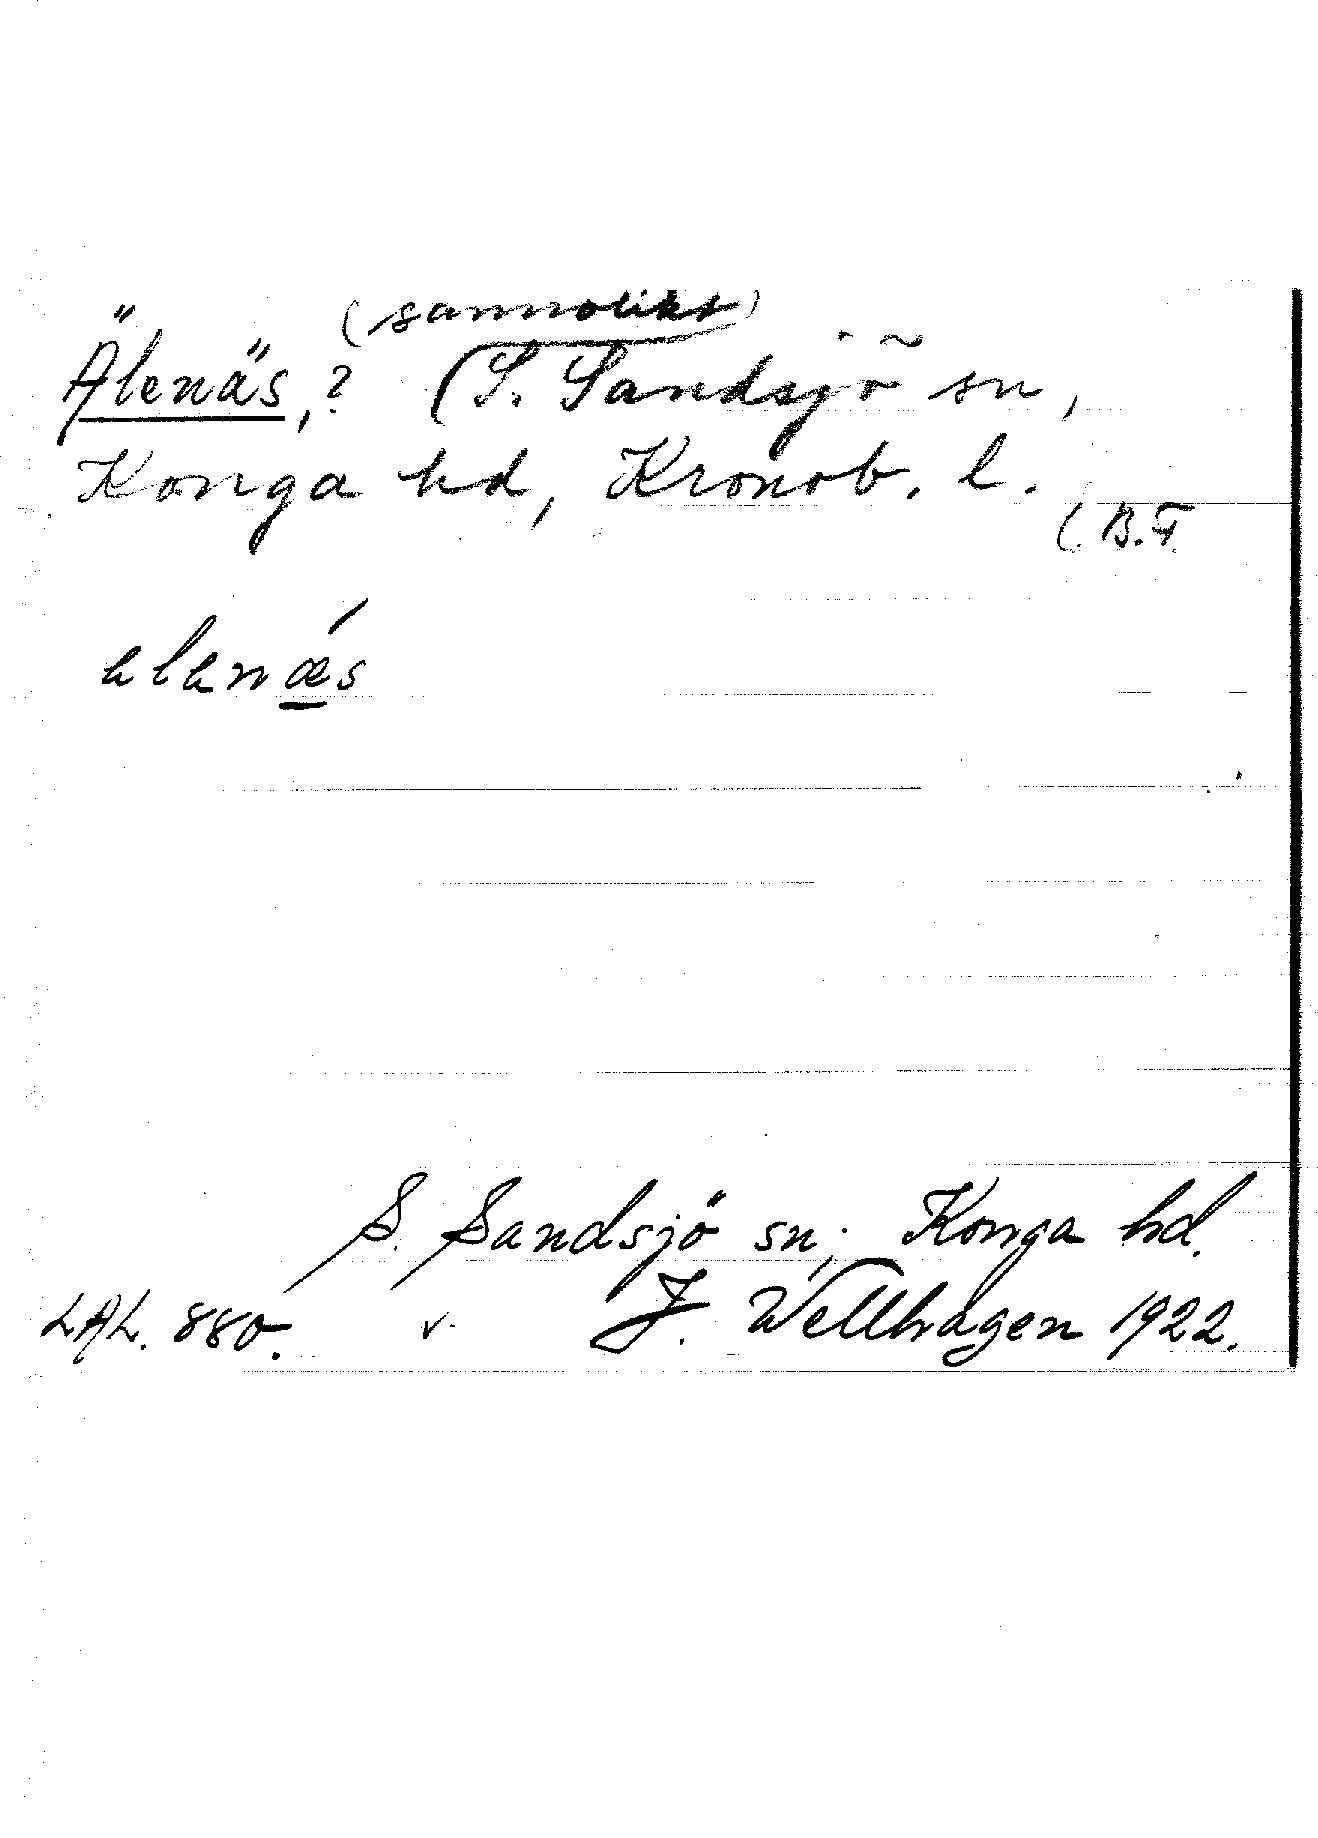 (sannolikt)
Älenäs,? (S. Sandsjö sn,
Konga hd, Kronob. l.
(B.F
elenǽs
S. Sandsjö sn, Konga hd.
LAL. 880. v. J. Wellhagen 1922.